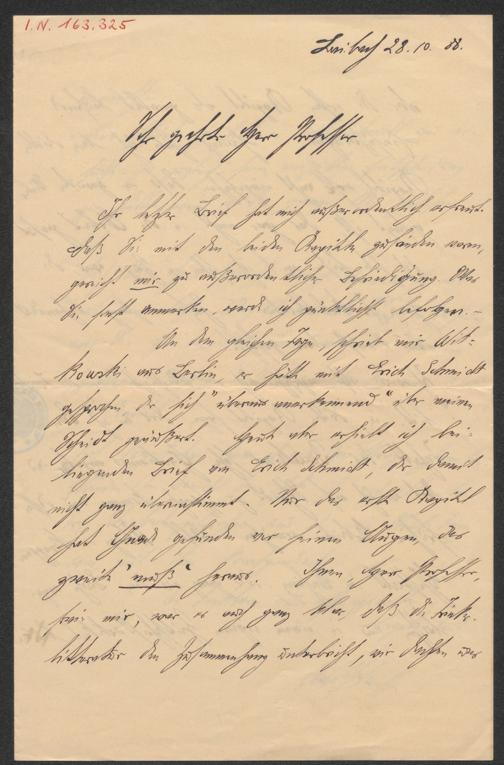 I.N. 163.325
Laibach 28. 10. 88.
Sehr geehrter Herr Professor
Ihr letzter Brief hat mich außerordentlich erfreut.
Daß Sie mit den beiden Kapiteln zufrieden waren,
gereicht mir zu außerordentlicher Befriedigung. Was
Sie sonst anmerken, werde ich pünktlichst befolgen. –
An dem gleichen Tage schrieb mir Wit-
kowski aus Berlin, er hätte mit Erich Schmidt
gesprochen, der sich "überaus anerkennend" über meinen
Scheidt geäußert. Heute aber erhielt ich bei-
liegenden Brief von Erich Schmidt, der damit
nicht ganz übereinstimmt. Nur das erste Kapitel
hat Gnade gefunden vor seinen Augen, das
zweite "muß" heraus. Ihnen, Herr Professor,
wie mir, war es auch ganz klar, daß die
litteratur den Zusammenhang unterbricht, wir dachten